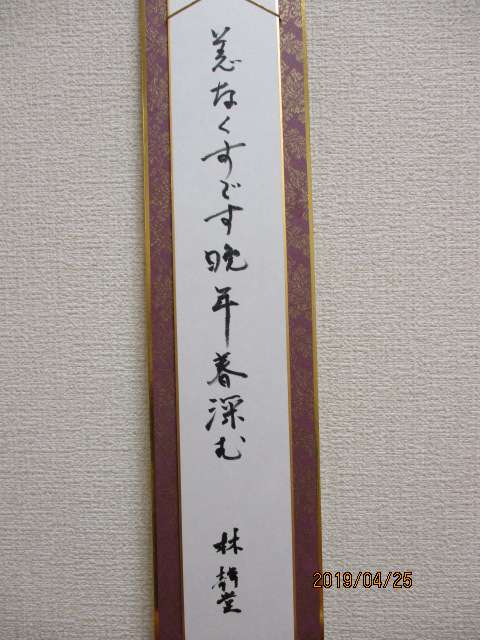 恙なくすごす晩年春深む
林
2019/04/25